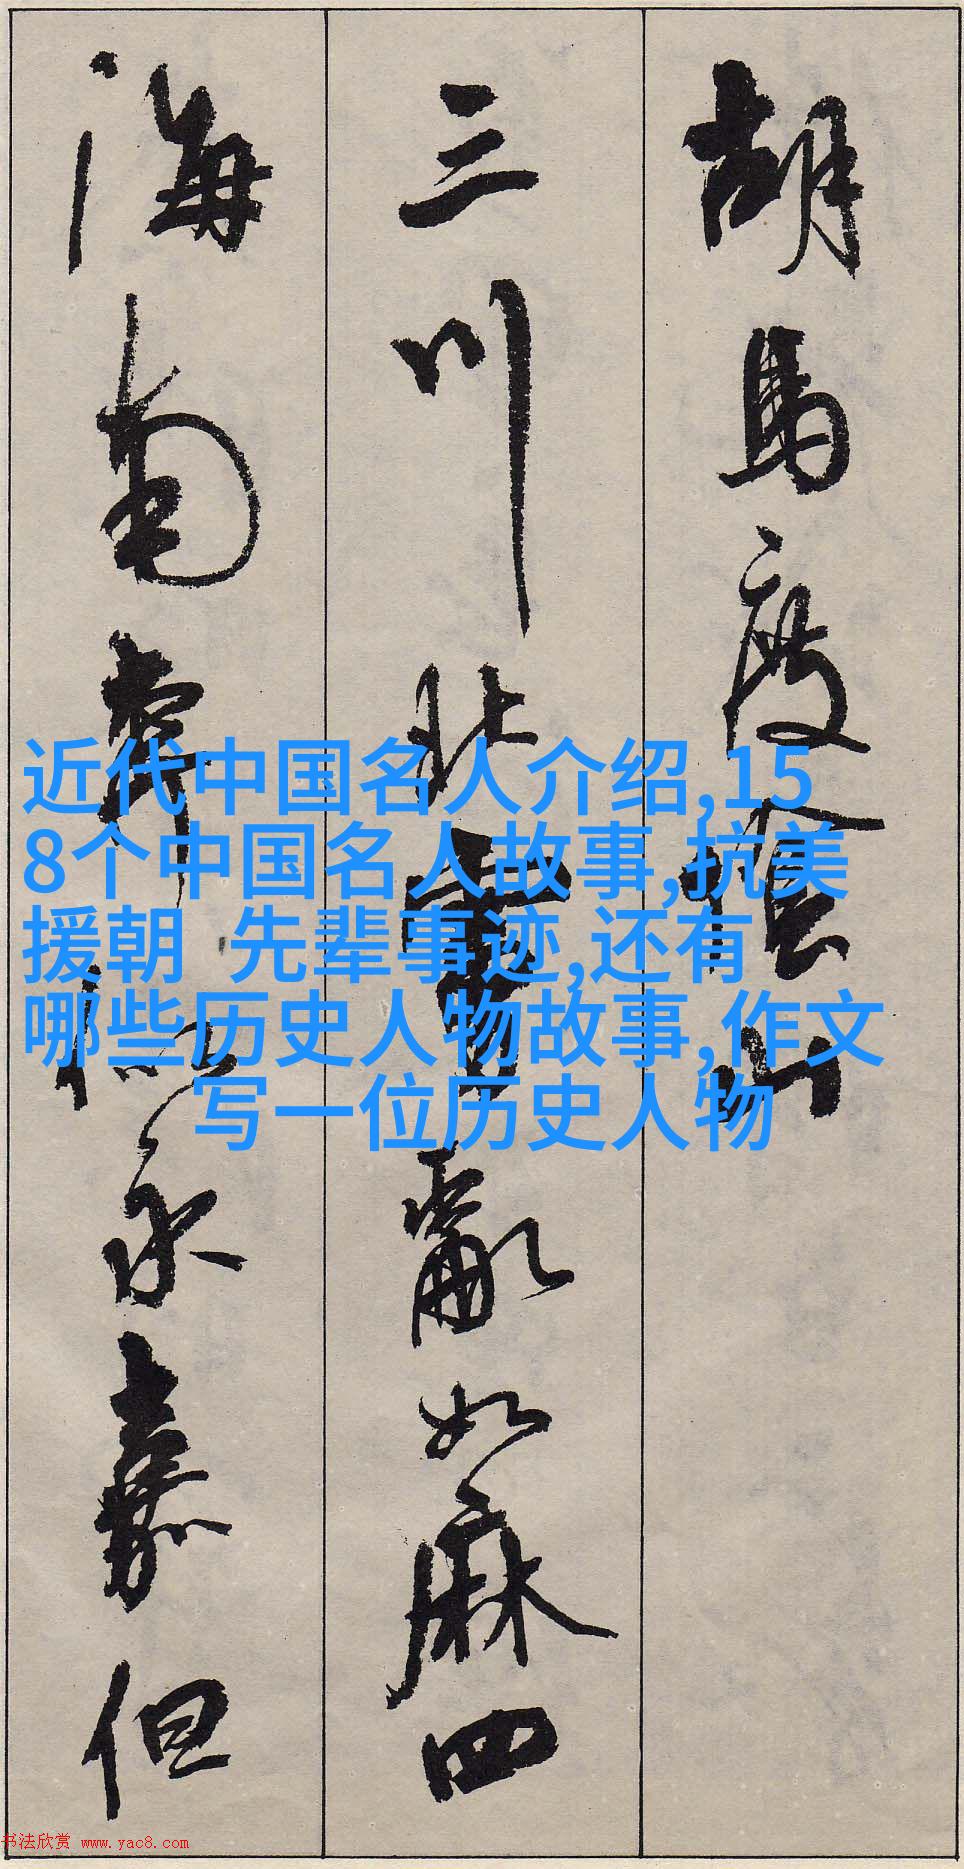 胡馬度陰山
三川北虜亂如麻四
海南奔似永嘉但
近代中国名人介绍,15
8个中国名人故事,抗美
援朝 先辈事迹,还有
哪些历史人物故事,作文
写一位历史人物
书法欣赏 www.yac8.com